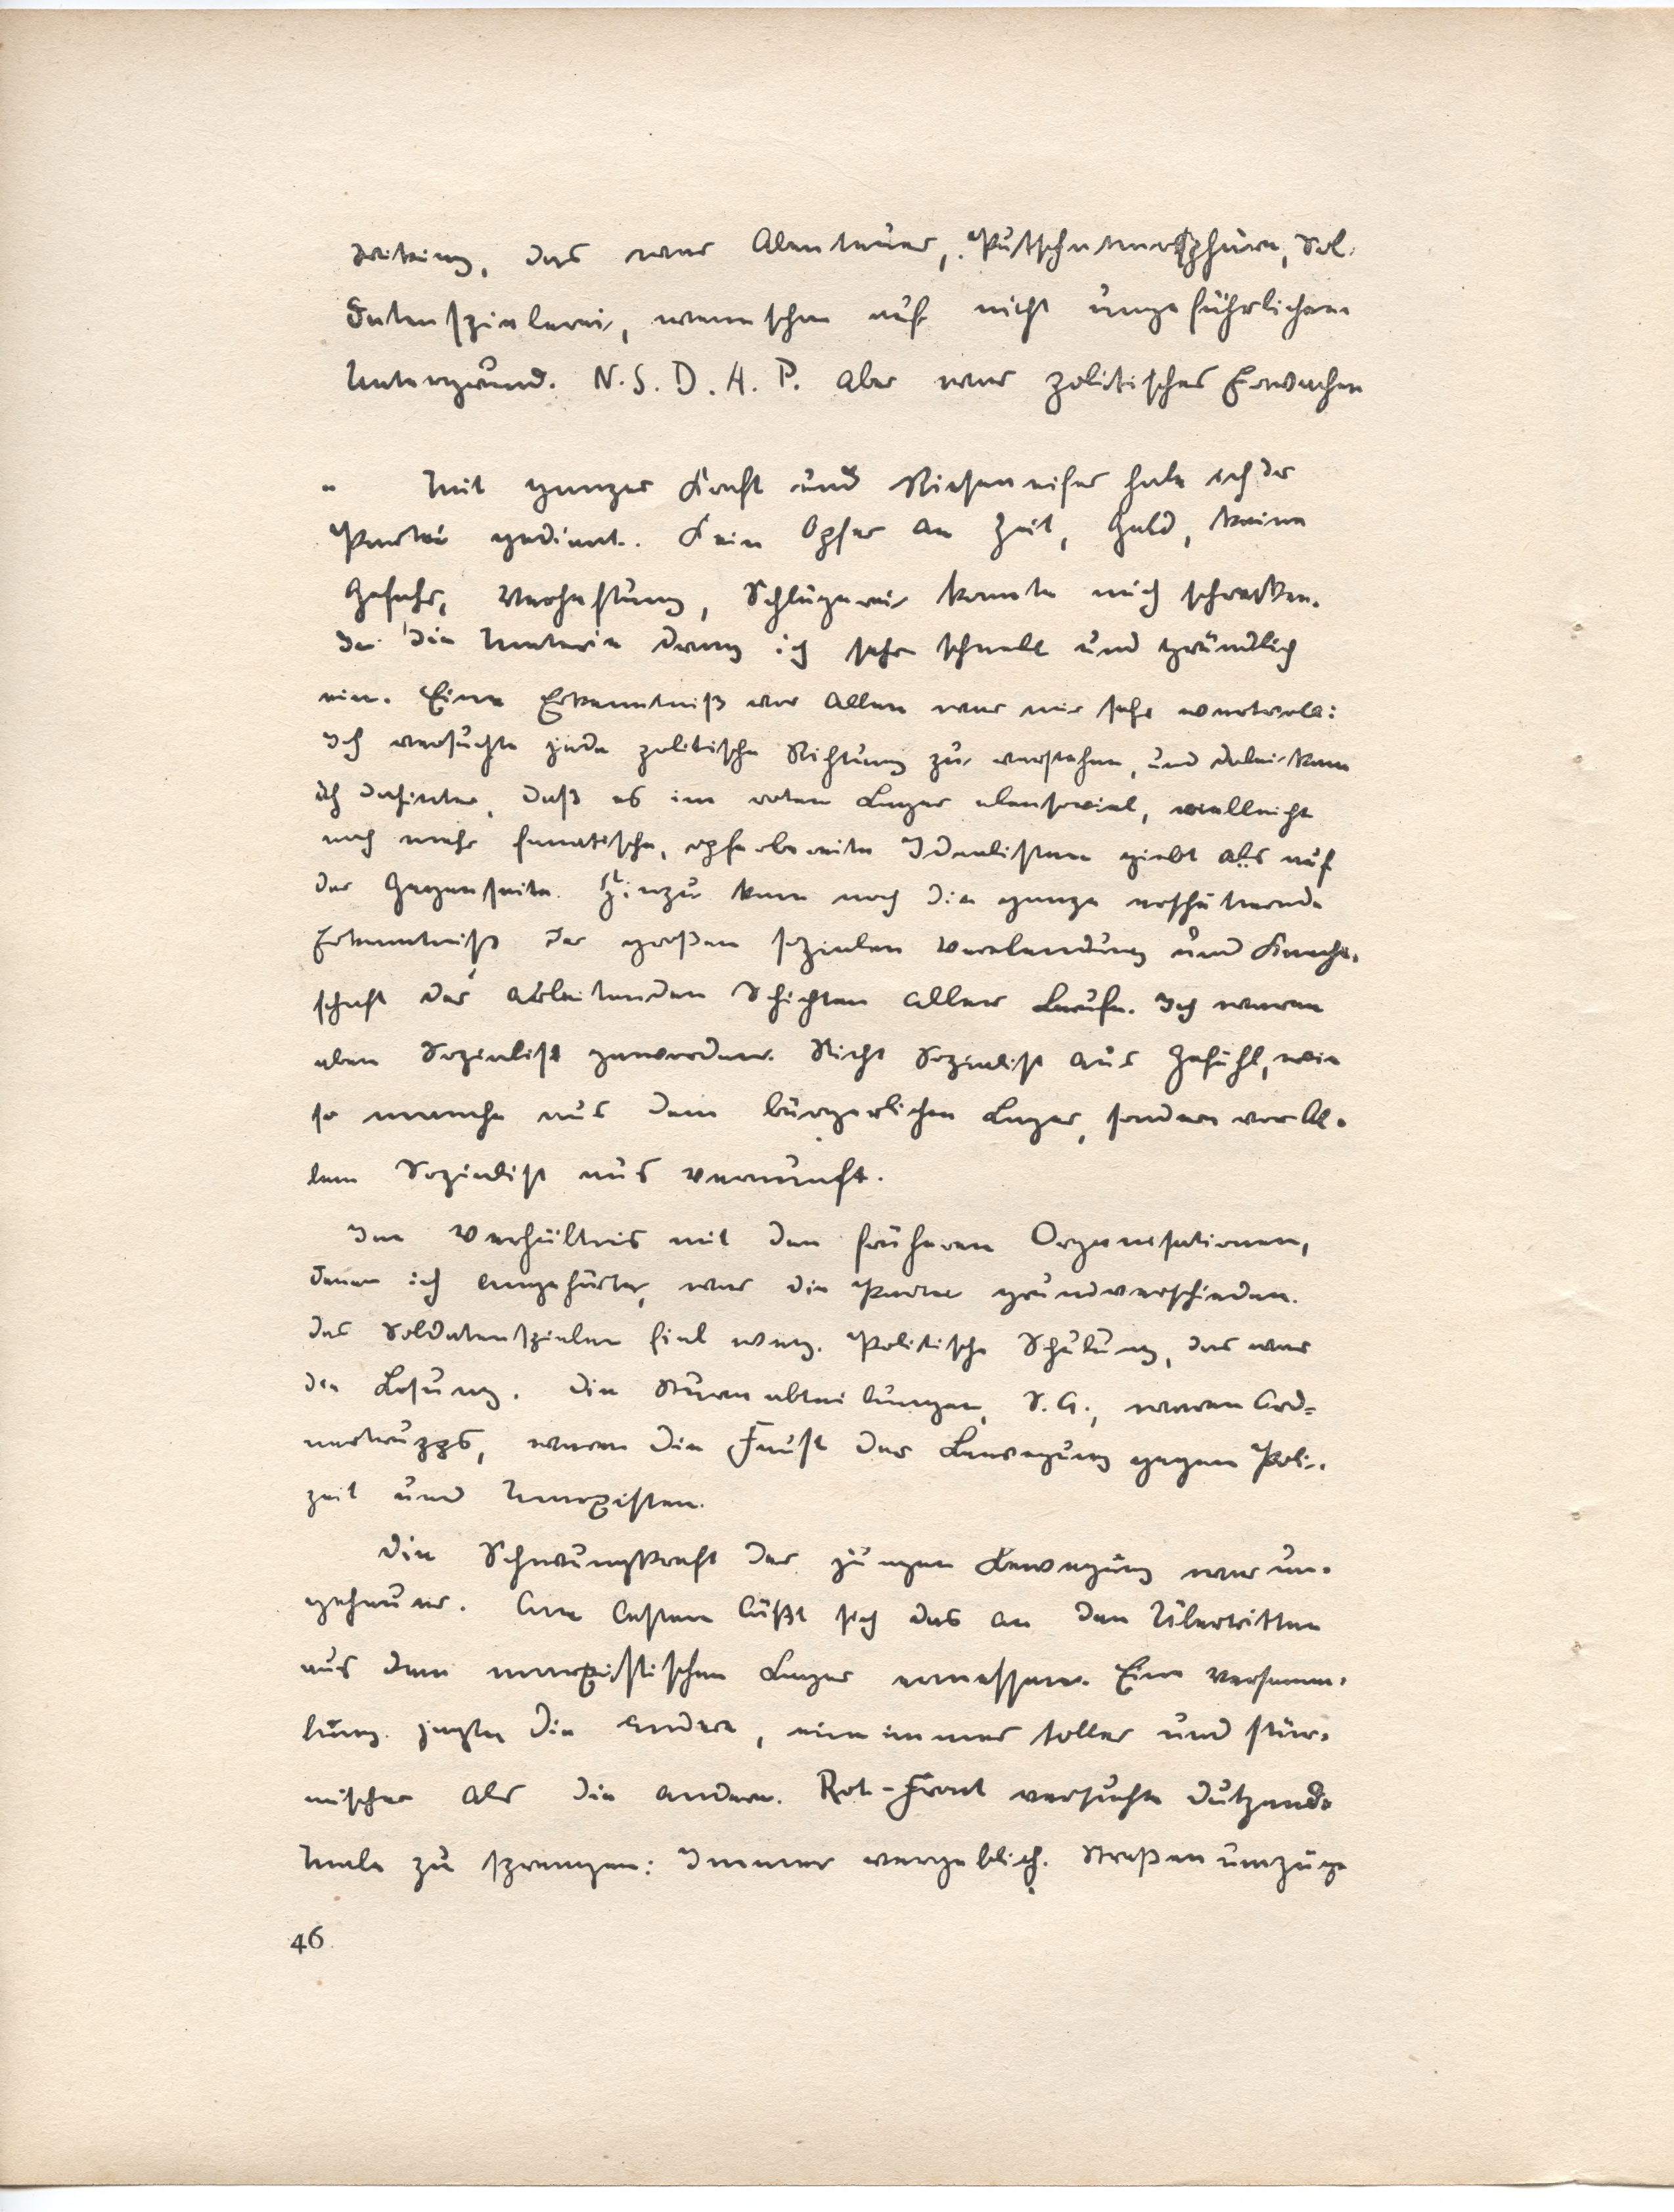 Wiking, das war Abenteuer, Putschatmosphäre, Sol-
datenspielerei, wenn schon auf nicht ungefährlichem
Untergrund. N.S.D.A.P. aber war politisches Erwachen
" Mit ganzer Kraft und Rieseneifer habe ich der
Partei gedient. Kein Opfer an Zeit, Geld, keine
Gefahr, Verhaftung, Schlägerei konnte mich schrecken.
In die Materie drang ich sehr schnell und gründlich
ein. Eine Erkenntniß vor allem war mir sehr wertvoll:
Ich versuchte jede politische Richtung zu verstehen, und dabei kam
ich dahinter, daß es im roten Lager ebensoviel, vielleicht
noch mehr fanatische, opferbereite Idealisten giebt als auf
der Gegenseite. Hinzu kam noch die ganze erschütternde
Erkenntniß der großen sozialen Verelendung und Knecht-
schaft der arbeitenden Schichten aller Berufe. Ich war
eben Sozialist geworden. Nicht Sozialist aus Gefühl, wie
so manche aus dem bürgerlichen Lager, sondern vor Al-
lem Sozialist aus Vernunft.
Im Verhältnis mit den früheren Organisationen,
denen ich angehörte, war die Partei grundverschieden.
Das Soldatenspielen fiel weg. Politische Schulung, das war
die Losung. Die Sturmabteilungen, S.A., waren Ord-
nertrupps, waren die Faust der Bewegung gegen Poli-
zei und Marxisten.
Die Schwungkraft der jungen Bewegung war un-
geheuer. Am besten läßt sich das an den Übertritten
aus dem marxistischen Lager ermessen. Eine Versamm-
lung jagte die andere, eine immer toller und stür-
mischer als die andere. Rot-Front versuchte dutzende
Male zu sprengen: Immer vergeblich. Straßenumzüge
46